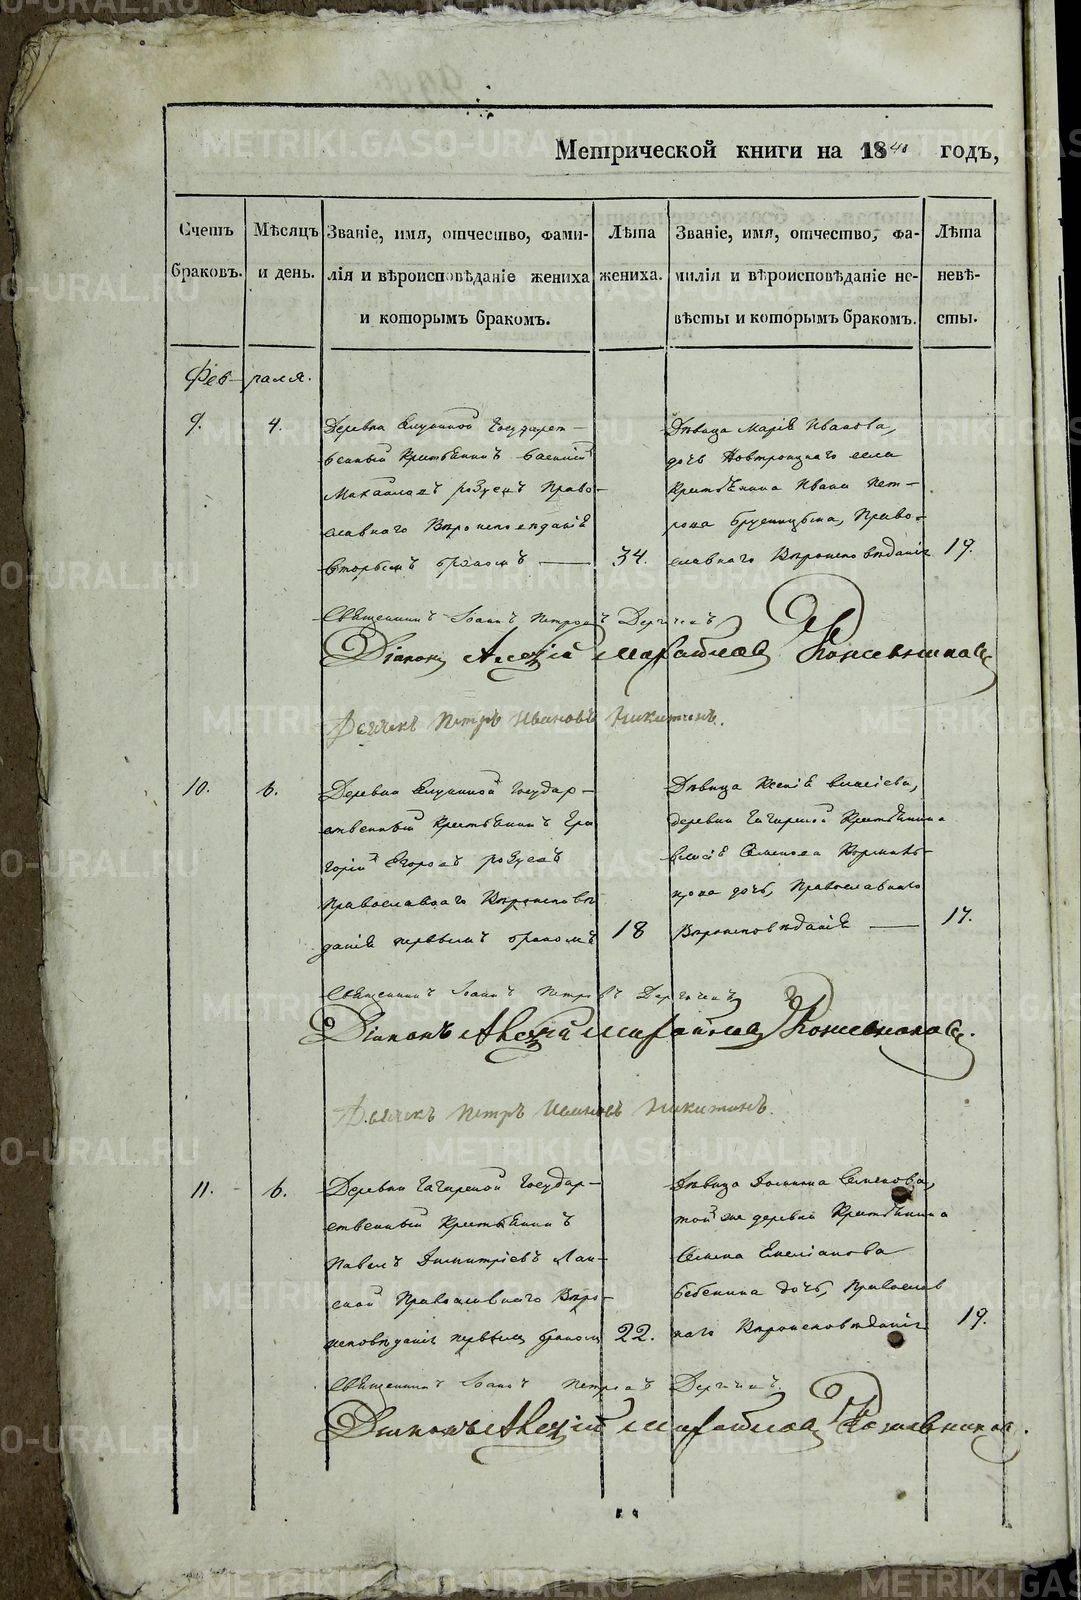 Метрической книги на 1840 годъ,
Счетъ браковъ.
Мѣсяцъ и день.
Званіе, имя, отчество, фами-
лія и вѣроисповѣданіе жениха
и которымъ бракомъ.
Лѣта
жениха.
Званіе, имя, отчество, фа-
милія и вѣроисповѣданіе не-
вѣсты и которымъ бракомъ.
Лѣта
невѣ-
сты.
Февраля.
9.
4.
Деревни Государст-
венный Крестьянинъ Василій
Михайловъ Право-
славнаго Вѣроисповѣданія
вторымъ бракомъ
34.
Дѣвица Марія Иванова,
дочь Новтроицкаго села
Крестьянина Ивана Пет-
рова Брусницына, Право-
славнаго Вѣроисповѣданія
19.
Священникъ Іоаннъ Петровъ
Діаконъ Алексій Михайловъ Кожевниковъ
Дьячекъ Петръ Ивановъ Никитинъ.
10.
6.
Деревни Государ-
ственный Крестьянинъ Гри
горій Егоровъ
Православнаго Вѣроисповѣ
данія первымъ бракомъ
18
Дѣвица Ксенія Власіева,
деревни Гагариной Крестьянина
Власія Семенова
дочь, Православнаго
Вѣроисповѣданія
17.
Священникъ Іоаннъ Петровъ
Діаконъ Алексій Михайловъ Кожевниковъ.
Дьячекъ Петръ Ивановъ Никитинъ.
11.
6.
Деревни Гагариной Государ-
ственный Крестьянинъ
Павелъ Димитріевъ
Православнаго Вѣро-
исповѣданія первымъ бракомъ
22.
Дѣвица Семенова,
той же деревни Крестьянина
Семена Емеліанова
Бабенина дочь, Православ
наго Вѣроисповѣданія
19.
Священникъ Іоаннъ Петровъ
Діаконъ Алексій Михайловъ Кожевниковъ.
METRIKI.GASO-URAL.RU